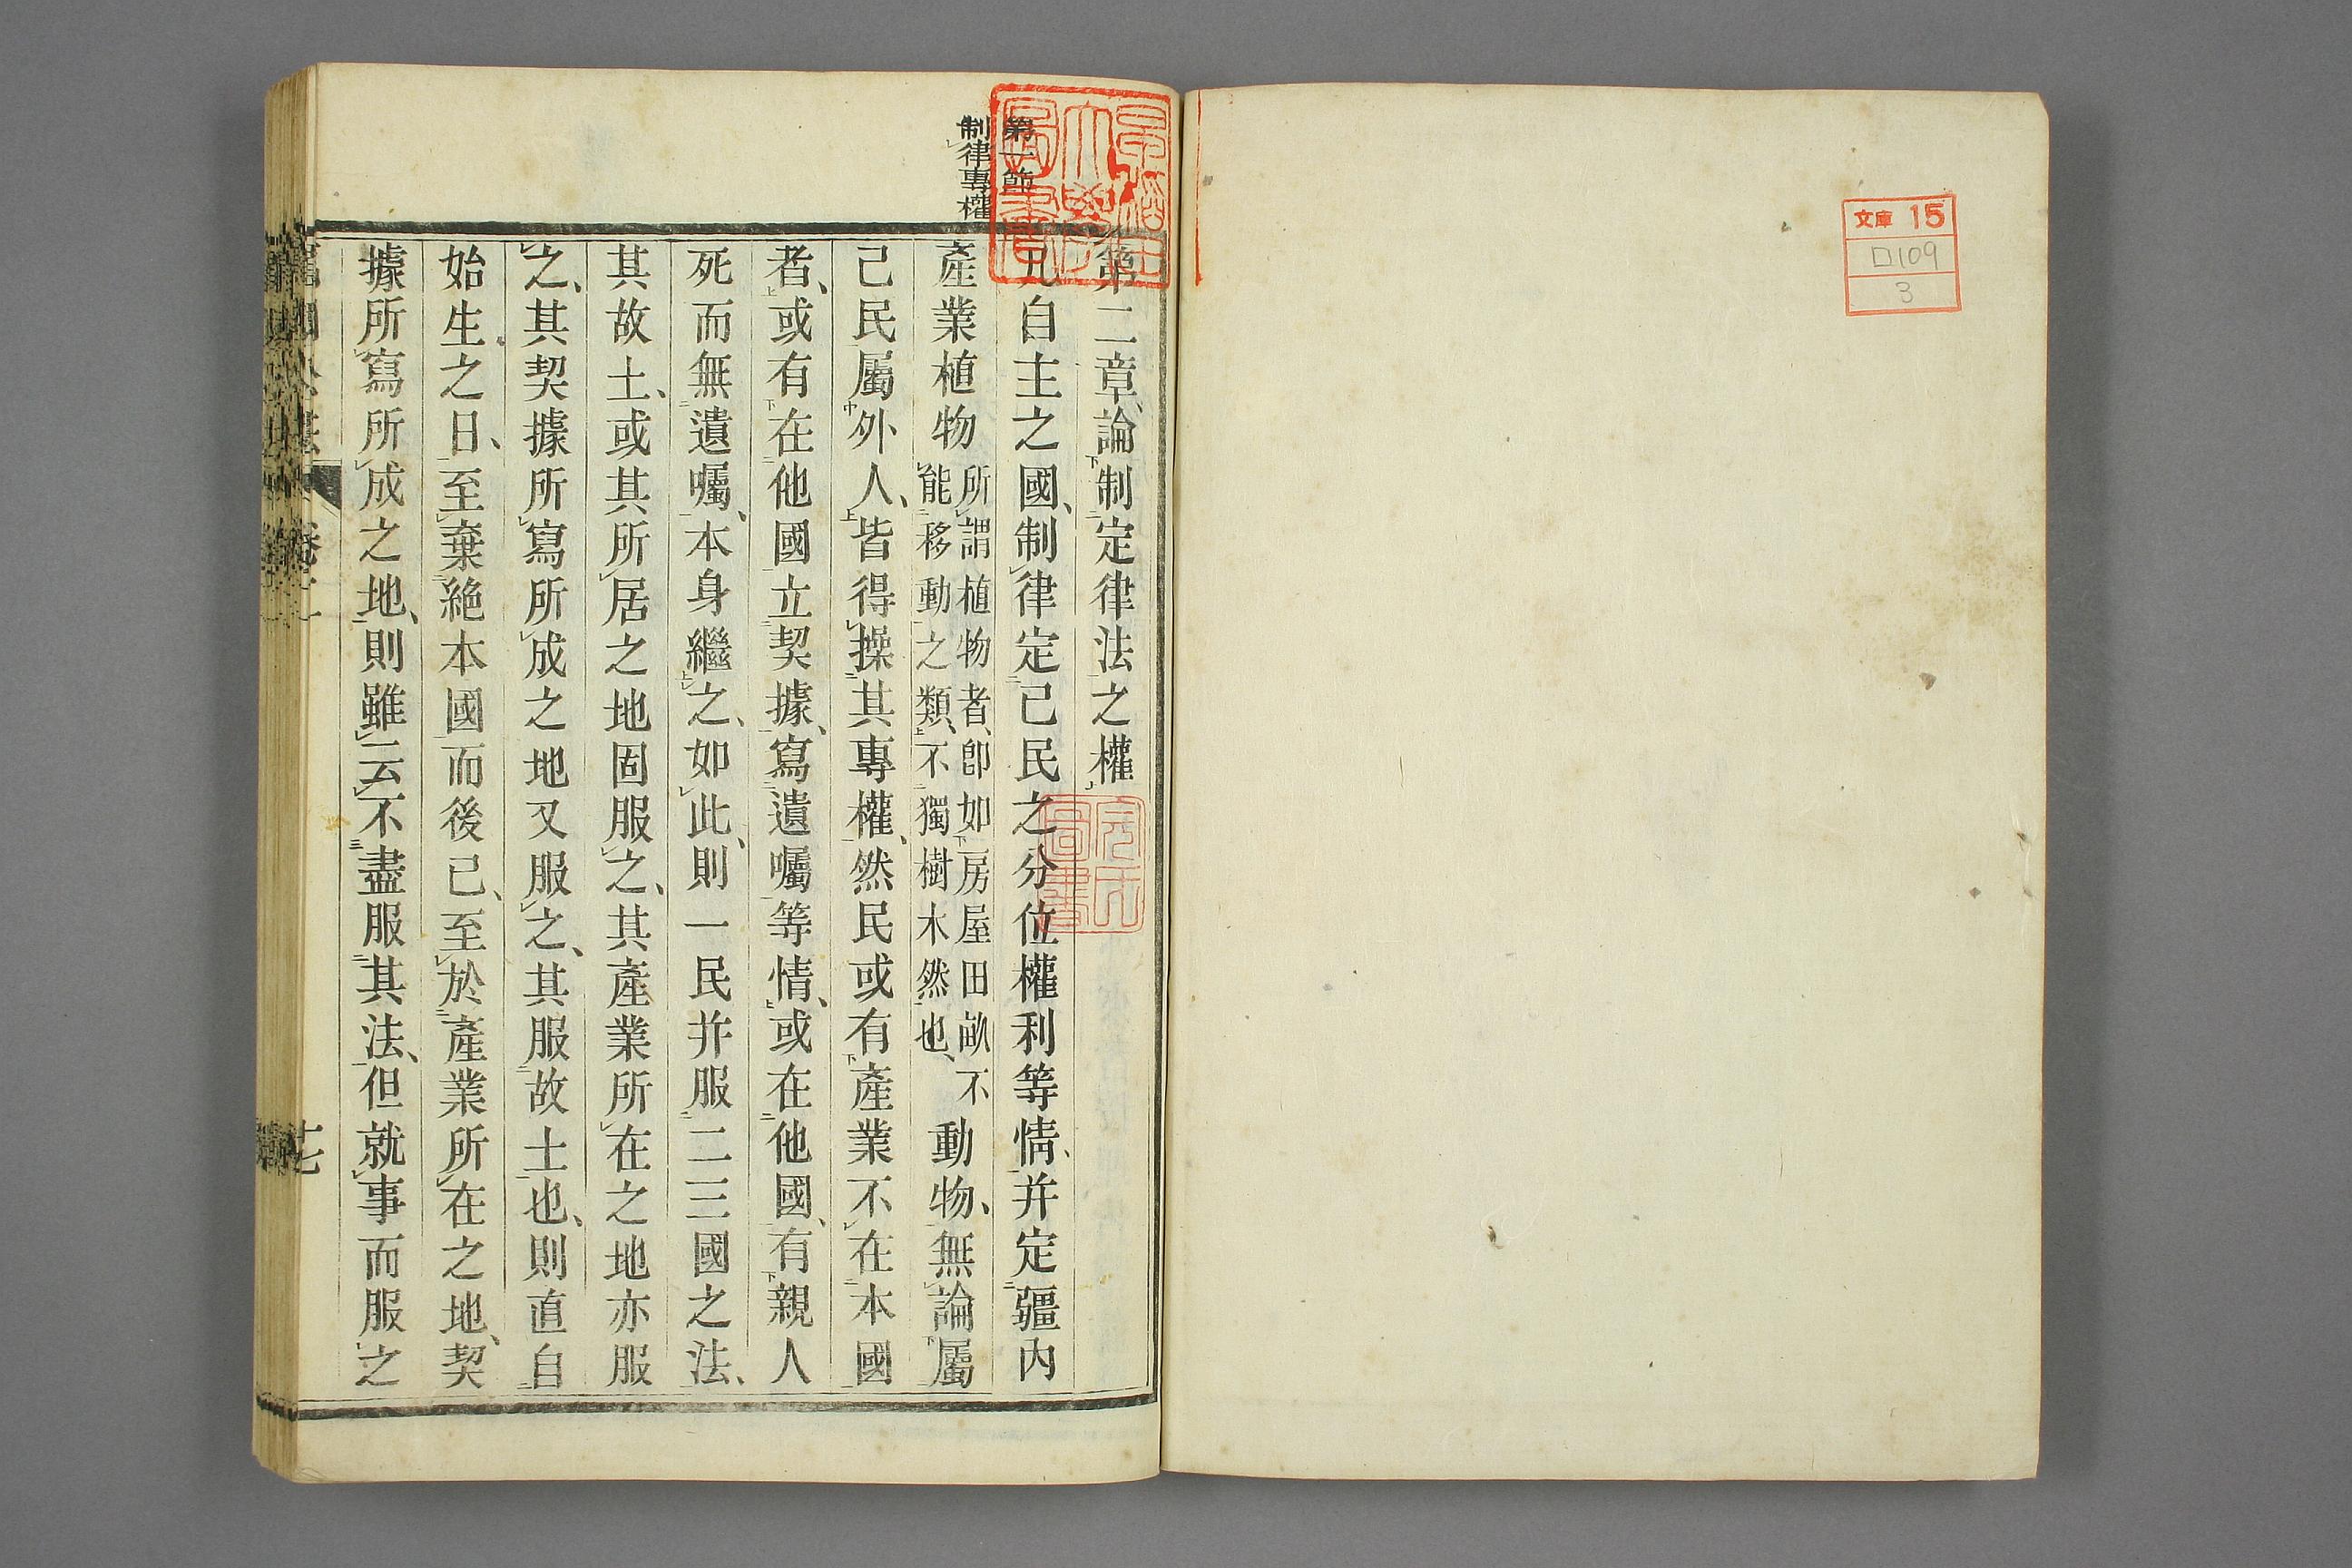 文庫 15
ロ109
3
早稲田大學圖書
第一節
制律專權
第二章、論制定律法之權
凡自主之國、制律定己民之分位權利等情、并定疆內
產業植物所謂植物者、卽如房屋田畝不能移動之類、不獨樹木然也、動物、無論屬
己民屬外人、皆得操其專權、然民或有產業不在本國
者、或有在他國立契據、寫遺囑等情、或在他國、有親人
死而無遺囑、本身繼之、如此、則一民并服二三國之法、
其故土、或其所居之地固服之、其產業所在之地亦服
之、其契據所寫所成之地又服之、其服故土也、則直自
始生之日、至棄絕本國而後已、至於產業所在之地、契
據所寫所成之地、則雖云不盡服其法、但就事而服之
卷二
十七